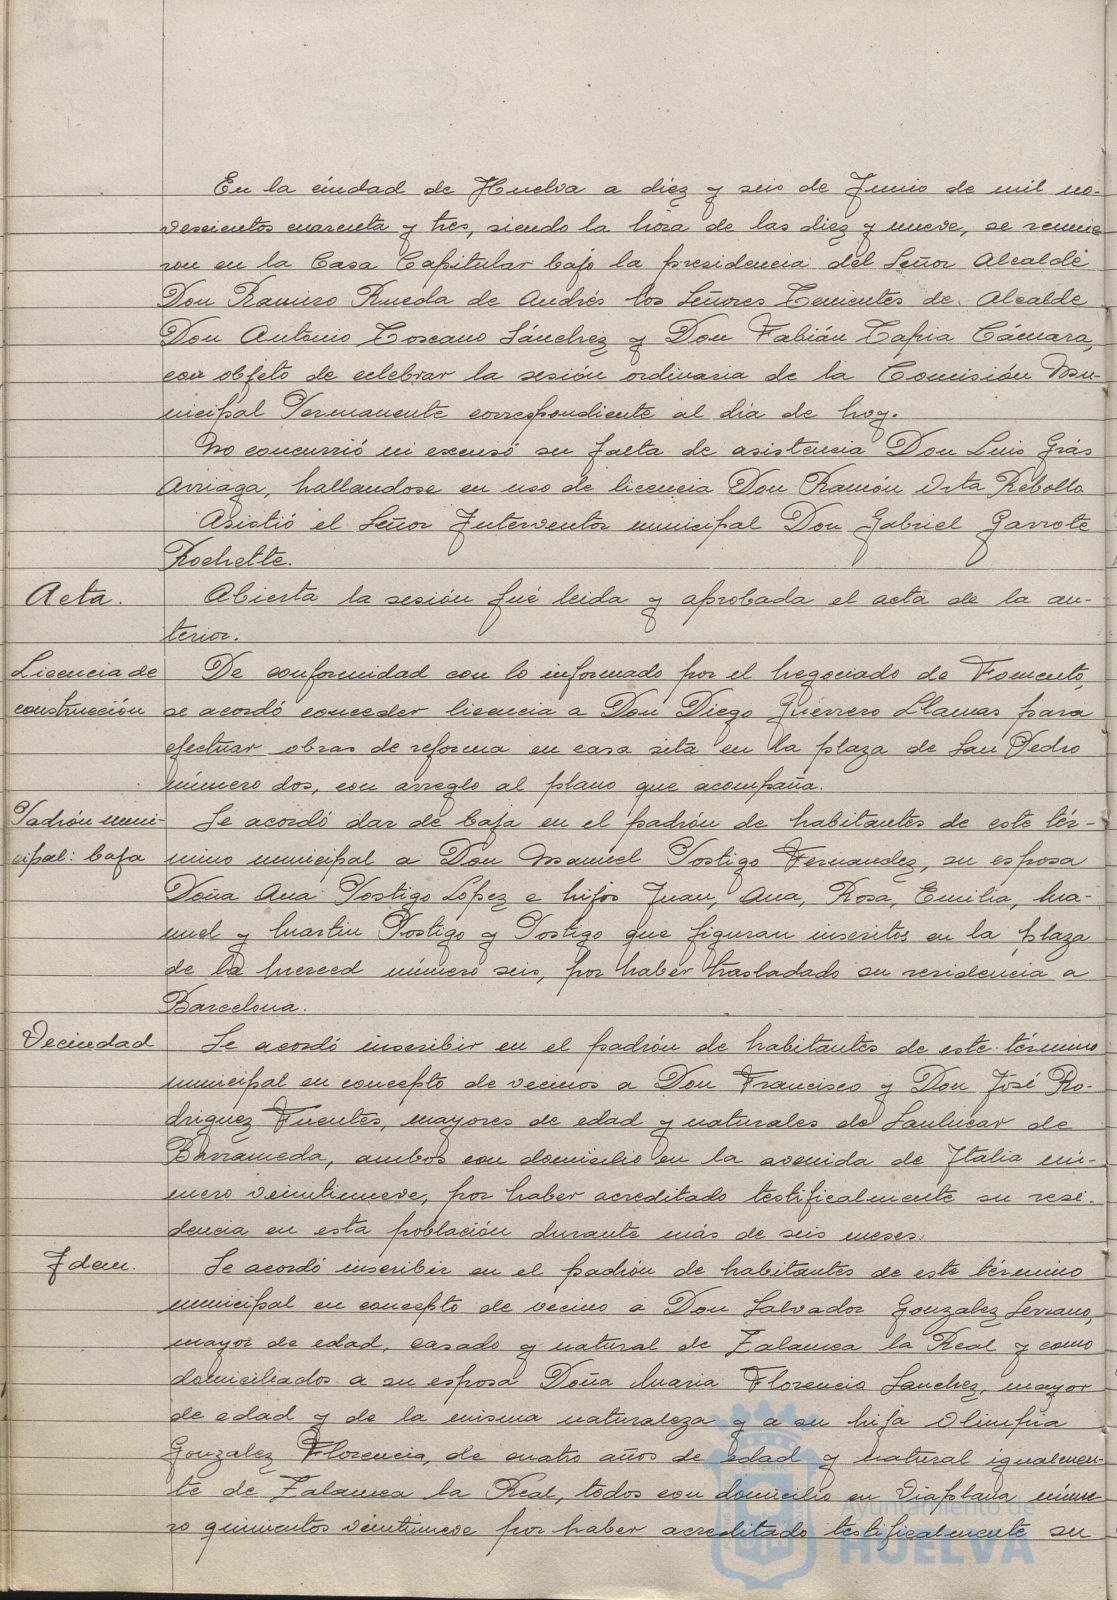 En la ciudad de Huelva a diez y seis de Junio de mil no-
vescientos cuarenta y tres, siendo la hora de las diez y nueve, se reunie
ron en la Casa Capitular bajo la presidencia del Señor Alcalde
Don Ramiro Rueda de Andrés los Señores Tenientes de Alcalde
Don Antonio Toscano Sánchez y Don Fabián Tapia Cámara,
con objeto de celebrar la sesión ordinaria de la Comisión Mu-
nicipal Permanente correspondiente al dia de hoy.
No concurrió ni excusó su falta de asistencia Don Luis Grás
Arriaga, hallandose en uso de licencia Don Ramón Orta Rebollo
Asistió el Señor Interventor municipal Don Gabriel Garrote
Rochette.
Acta. Abierta la sesión fué leida y aprobada el acta de la an-
terior.
Licencia de De conformidad con lo informado por el Negociado de Fomento,
construcción se acordó conceder licencia a Don Diego Guerrero Llamas para
efectuar obras de reforma en casa sita en la plaza de San Pedro
número dos, con arreglo al plano que acompaña.
Padrón muni- Se acordó dar de baja en el padrón de habitantes de este tér-
cipal: baja mino municipal a Don Manuel Postigo Fernandez, su esposa
Doña Ana Postigo López e hijos Juan, Ana, Rosa, Emilia, Ma-
nuel y Martin Postigo y Postigo que figuran inscritos en la plaza
de la Merced número seis, por haber trasladado su residencia a
Barcelona.
Vecindad Se acordó inscribir en el padrón de habitantes de este término
municipal en concepto de vecinos a Don Francisco y Don José Ro-
driguez Fuentes, mayores de edad y naturales de Sanlucar de
Barrameda, ambos con domicilio en la avenida de Italia nú-
mero veintinueve, por haber acreditado testificalmente su resi-
dencia en esta población durante más de seis meses.
Idem. Se acordó inscribir en el padrón de habitantes de este término
municipal en concepto de vecino a Don Salvador Gonzalez Serrano,
mayor de edad, casado y natural de Zalamea la Real y como
domiciliados a su esposa Doña Maria Florencio Sanchez, mayor
de edad y de la misma naturaleza y a su hija Olimpia
Gonzalez Florencia, de cuatro años de edad y natural igualmen-
te de Zalamea la Real, todos con domicilio en Viaplana núme
ro quinientos veintinueve por haber acreditado testificalmente su
Ayuntamiento de
HUELVA